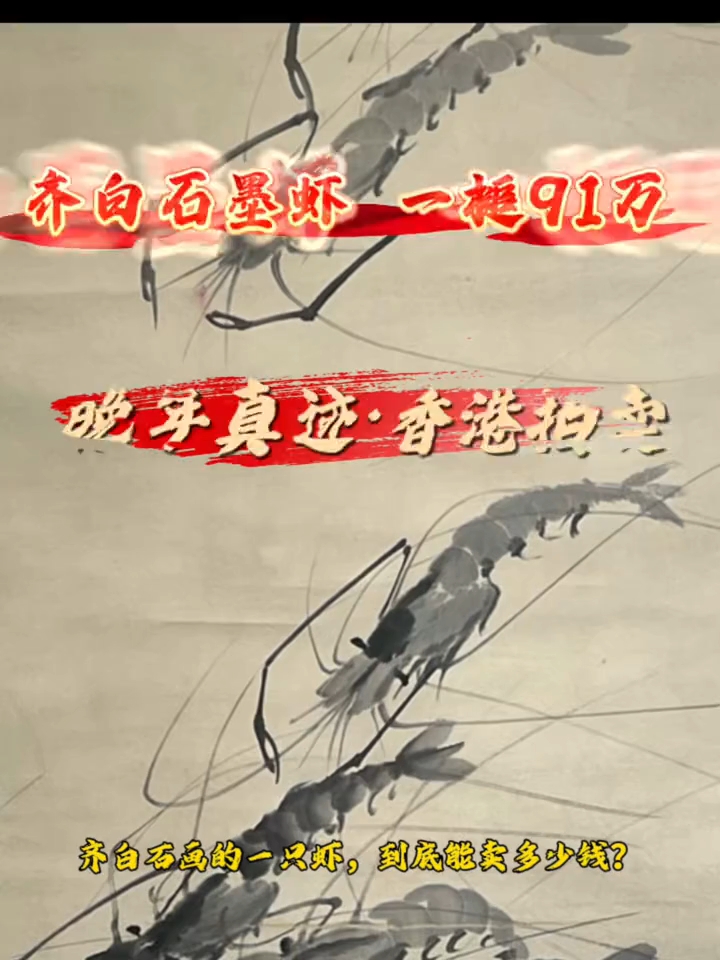 齐白石墨虾 一槌91万
晚年真迹·香港拍卖
齐白石画的一只虾，到底能卖多少钱？